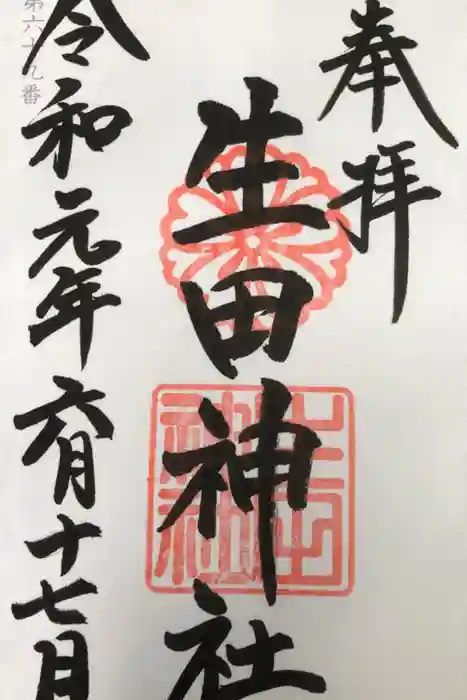 奉拝
生田神社
令和元年六月十七日
第六十九番
生田
神社